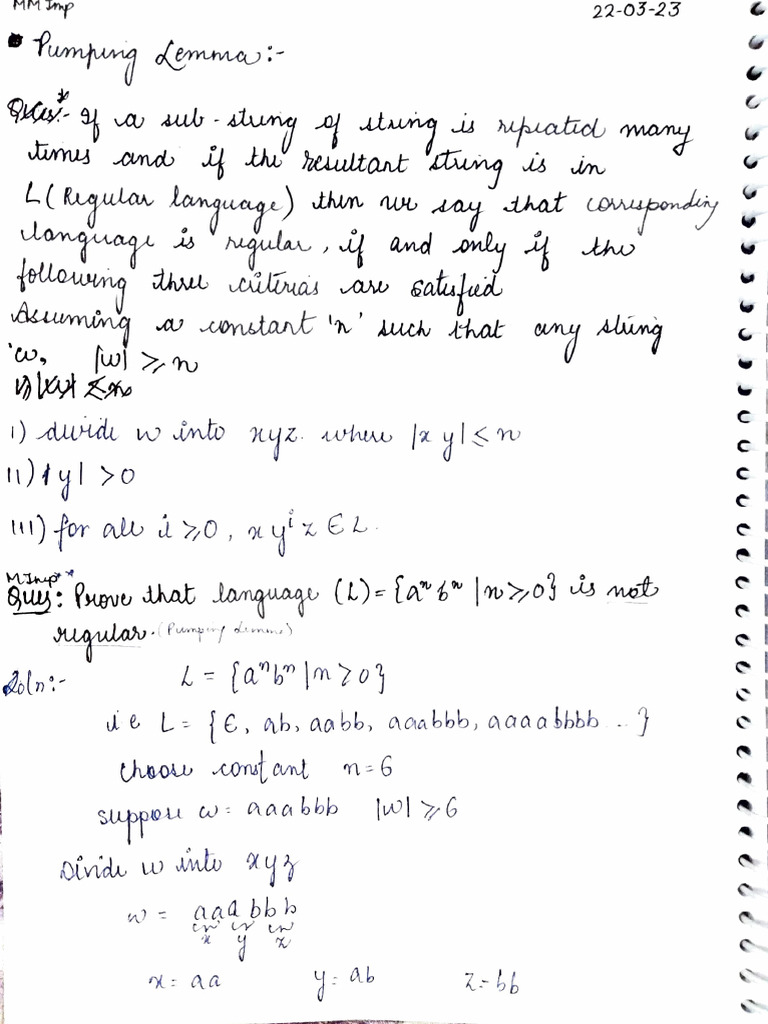 MM Imp
22-03-23
• Pumping Lemma:-
If a sub-string of string is repeated many
times and if the resultant string is in
L (Regular language) then we say that corresponding
language is regular, if and only if the
following three criterias are satisfied
Assuming a constant 'n' such that any string
'w, |w| ≥ n
i) divide w into xyz. where |xy| ≤ n
ii) |y| > 0
iii) for all i ≥ 0, xyⁱz ∈ L.
M Imp**
Ques: Prove that language (L) = {aⁿbⁿ | n ≥ 0} is not
regular. (Pumping Lemma)
Soln:- L = {aⁿbⁿ | n ≥ 0}
i e L = {ϵ, ab, aabb, aaabbb, aaaabbbb ... }
choose constant n=6
suppose w = aaabbb |w| ≥ 6
Divide w into xyz
w = aaabbb
x y z
x = aa y = ab z = bb